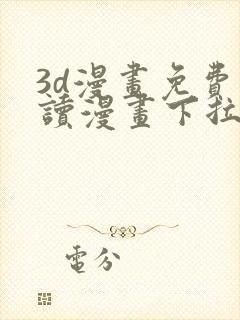 3d漫畫免費
讀漫畫下拉
電分